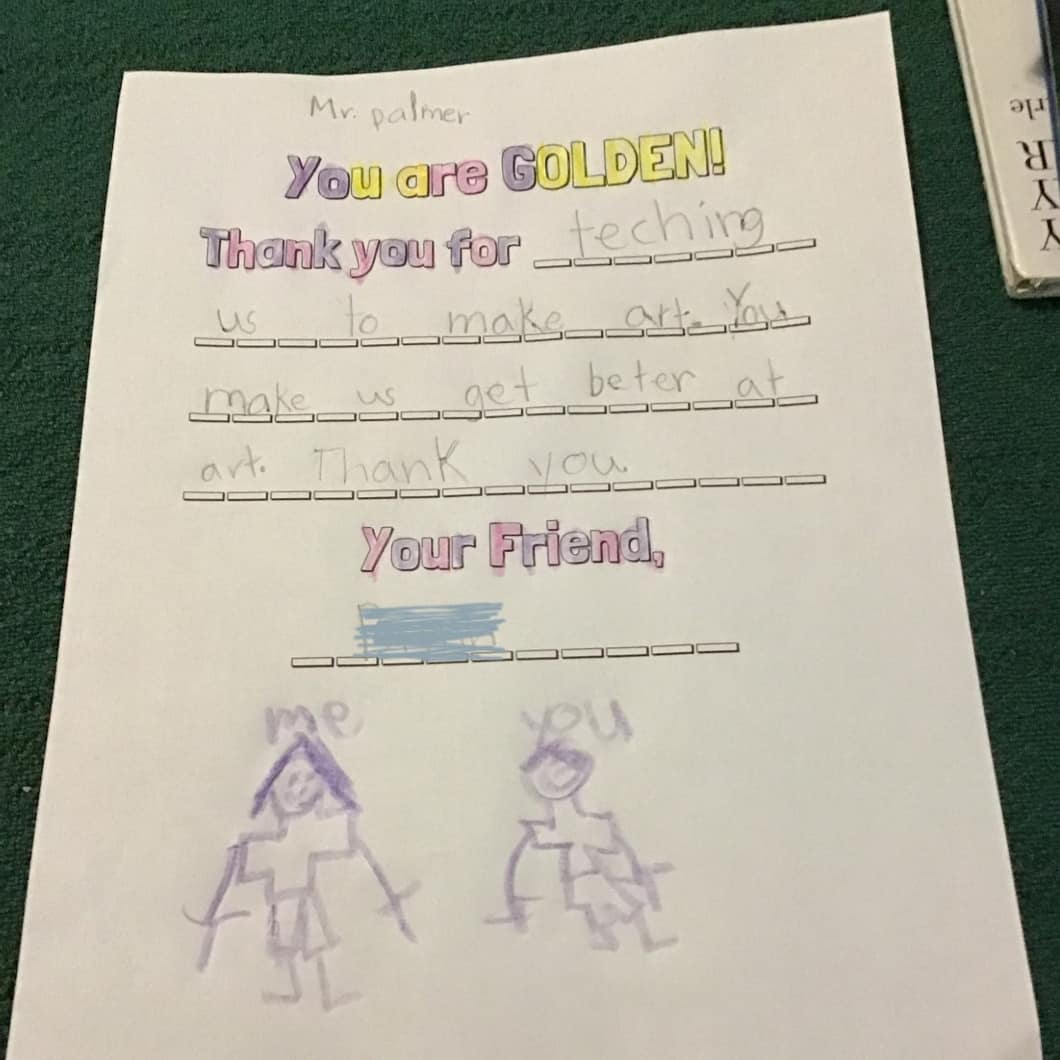 Mr. palmer
You are GOLDEN!
Thank you for teching
us to make art. You
make us get beter at
art. Thank you.
Your Friend,
me you